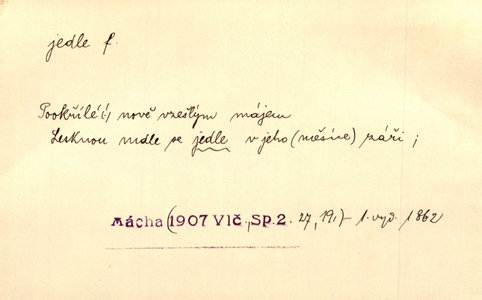 jedle f.
Pookřílé(i) nově vzešlým májem
Lesknou mdle se jedle v jeho (měsíce) záři;
Mácha (1907 Vlč., Sp. 2. 27, 19.) – 1. vyd. 1862